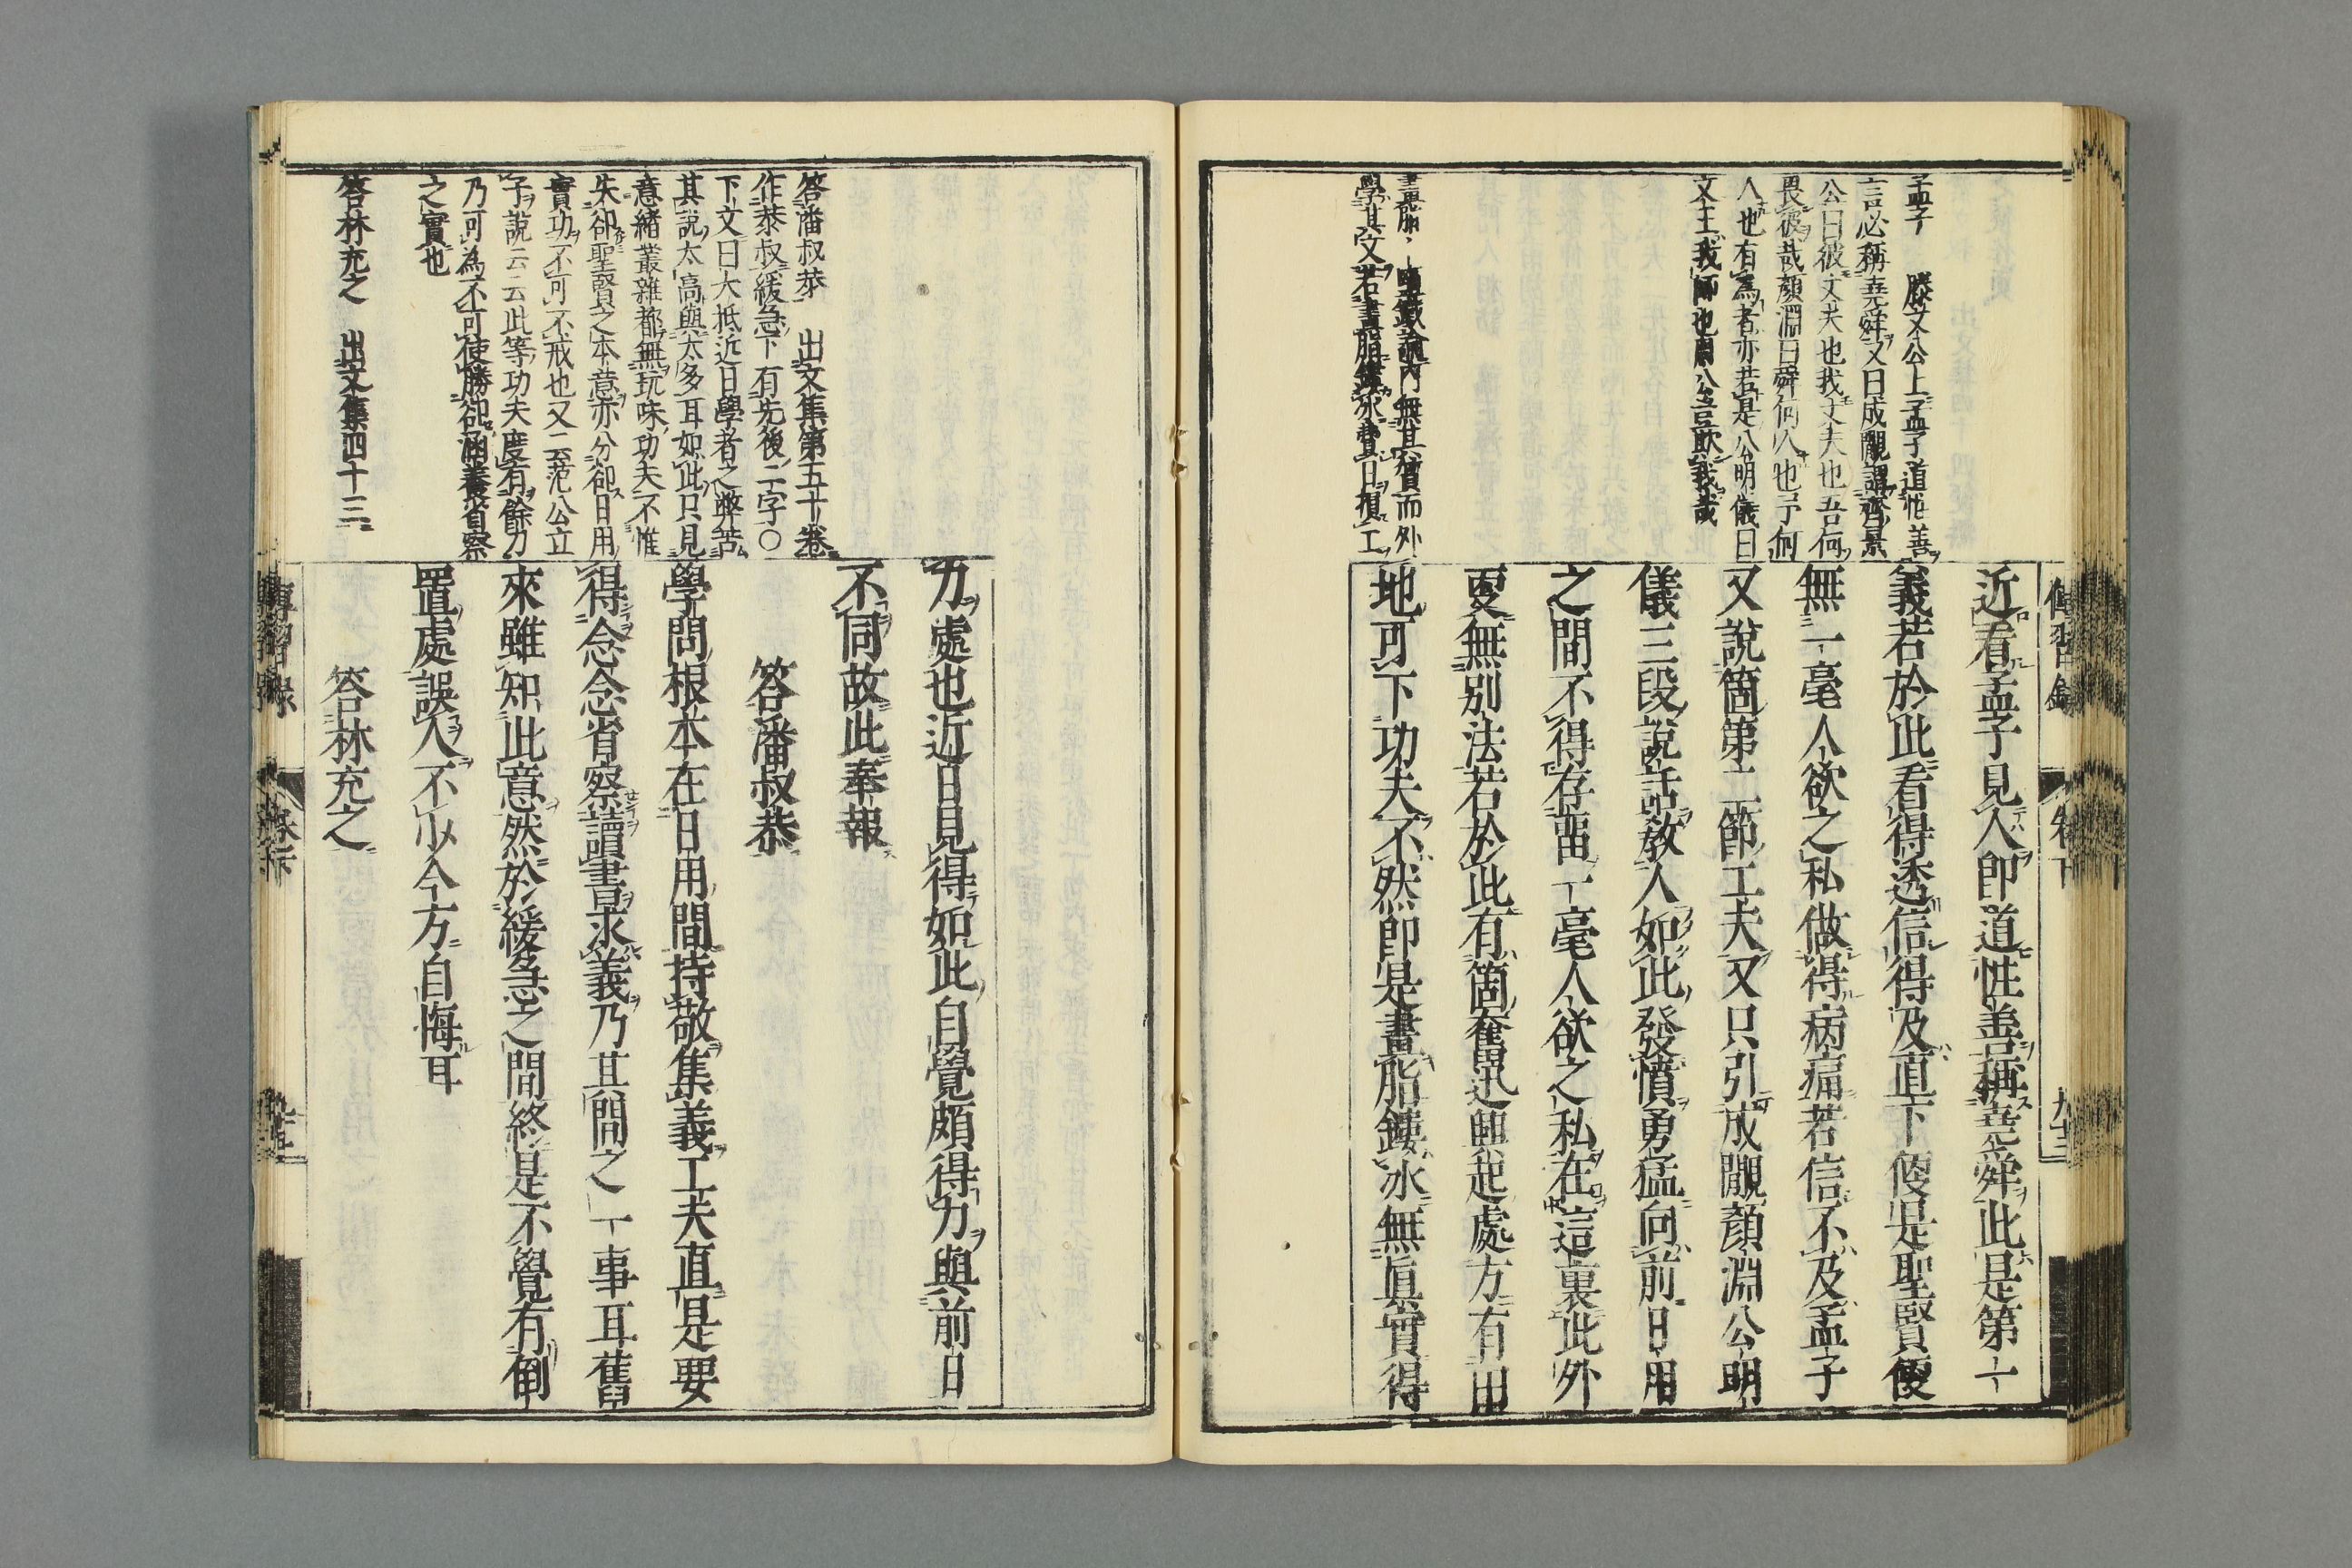 孟子　滕文公上孟子道性善
言必稱堯舜又曰成覸謂齊景
公曰彼丈夫也我丈夫也吾何
畏彼哉顏淵曰舜何人也予何
人也有爲者亦若是公明儀曰
文王我師也周公豈欺我哉
畫脂　鹽鐵論內無其質而外
學其文若畫脂鏤冰費日損工
近看孟子見人卽道性善稱堯舜此是第一
義若於此看得透信得及直下便是聖賢便
無一毫人欲之私做得病痛若信不及孟子
又說箇第二節工夫又只引成覸顏淵公明
儀三段說話敎人如此發憤勇猛向前日用
之間不得存畱一毫人欲之私在這裏此外
更無別法若於此有箇奮迅興起處方有田
地可下功夫不然卽是畫脂鏤冰無眞實得
傳習錄　卷下　九十三
答潘叔恭　出文集第五十卷
作恭叔緩急下有先後二字○
下文曰大抵近日學者之弊苦
其說太高與太多耳如此只見
意緒叢雜都無玩味功夫不惟
失卻聖賢之本意亦分卻日用
實功不可不戒也又云范公立
子說云云此等功夫度有餘力
乃可爲不可使勝卻涵養省察
之實也
答林充之　出文集四十三
力處也近日見得如此自覺頗得力與前日
不同故此奉報
答潘叔恭
學問根本在日用間持敬集義工夫直是要
得念念省察讀書求義乃其間之一事耳舊
來雖知此意然於緩急之間終是不覺有倒
置處誤人不少今方自悔耳
答林充之
傳習錄　卷下